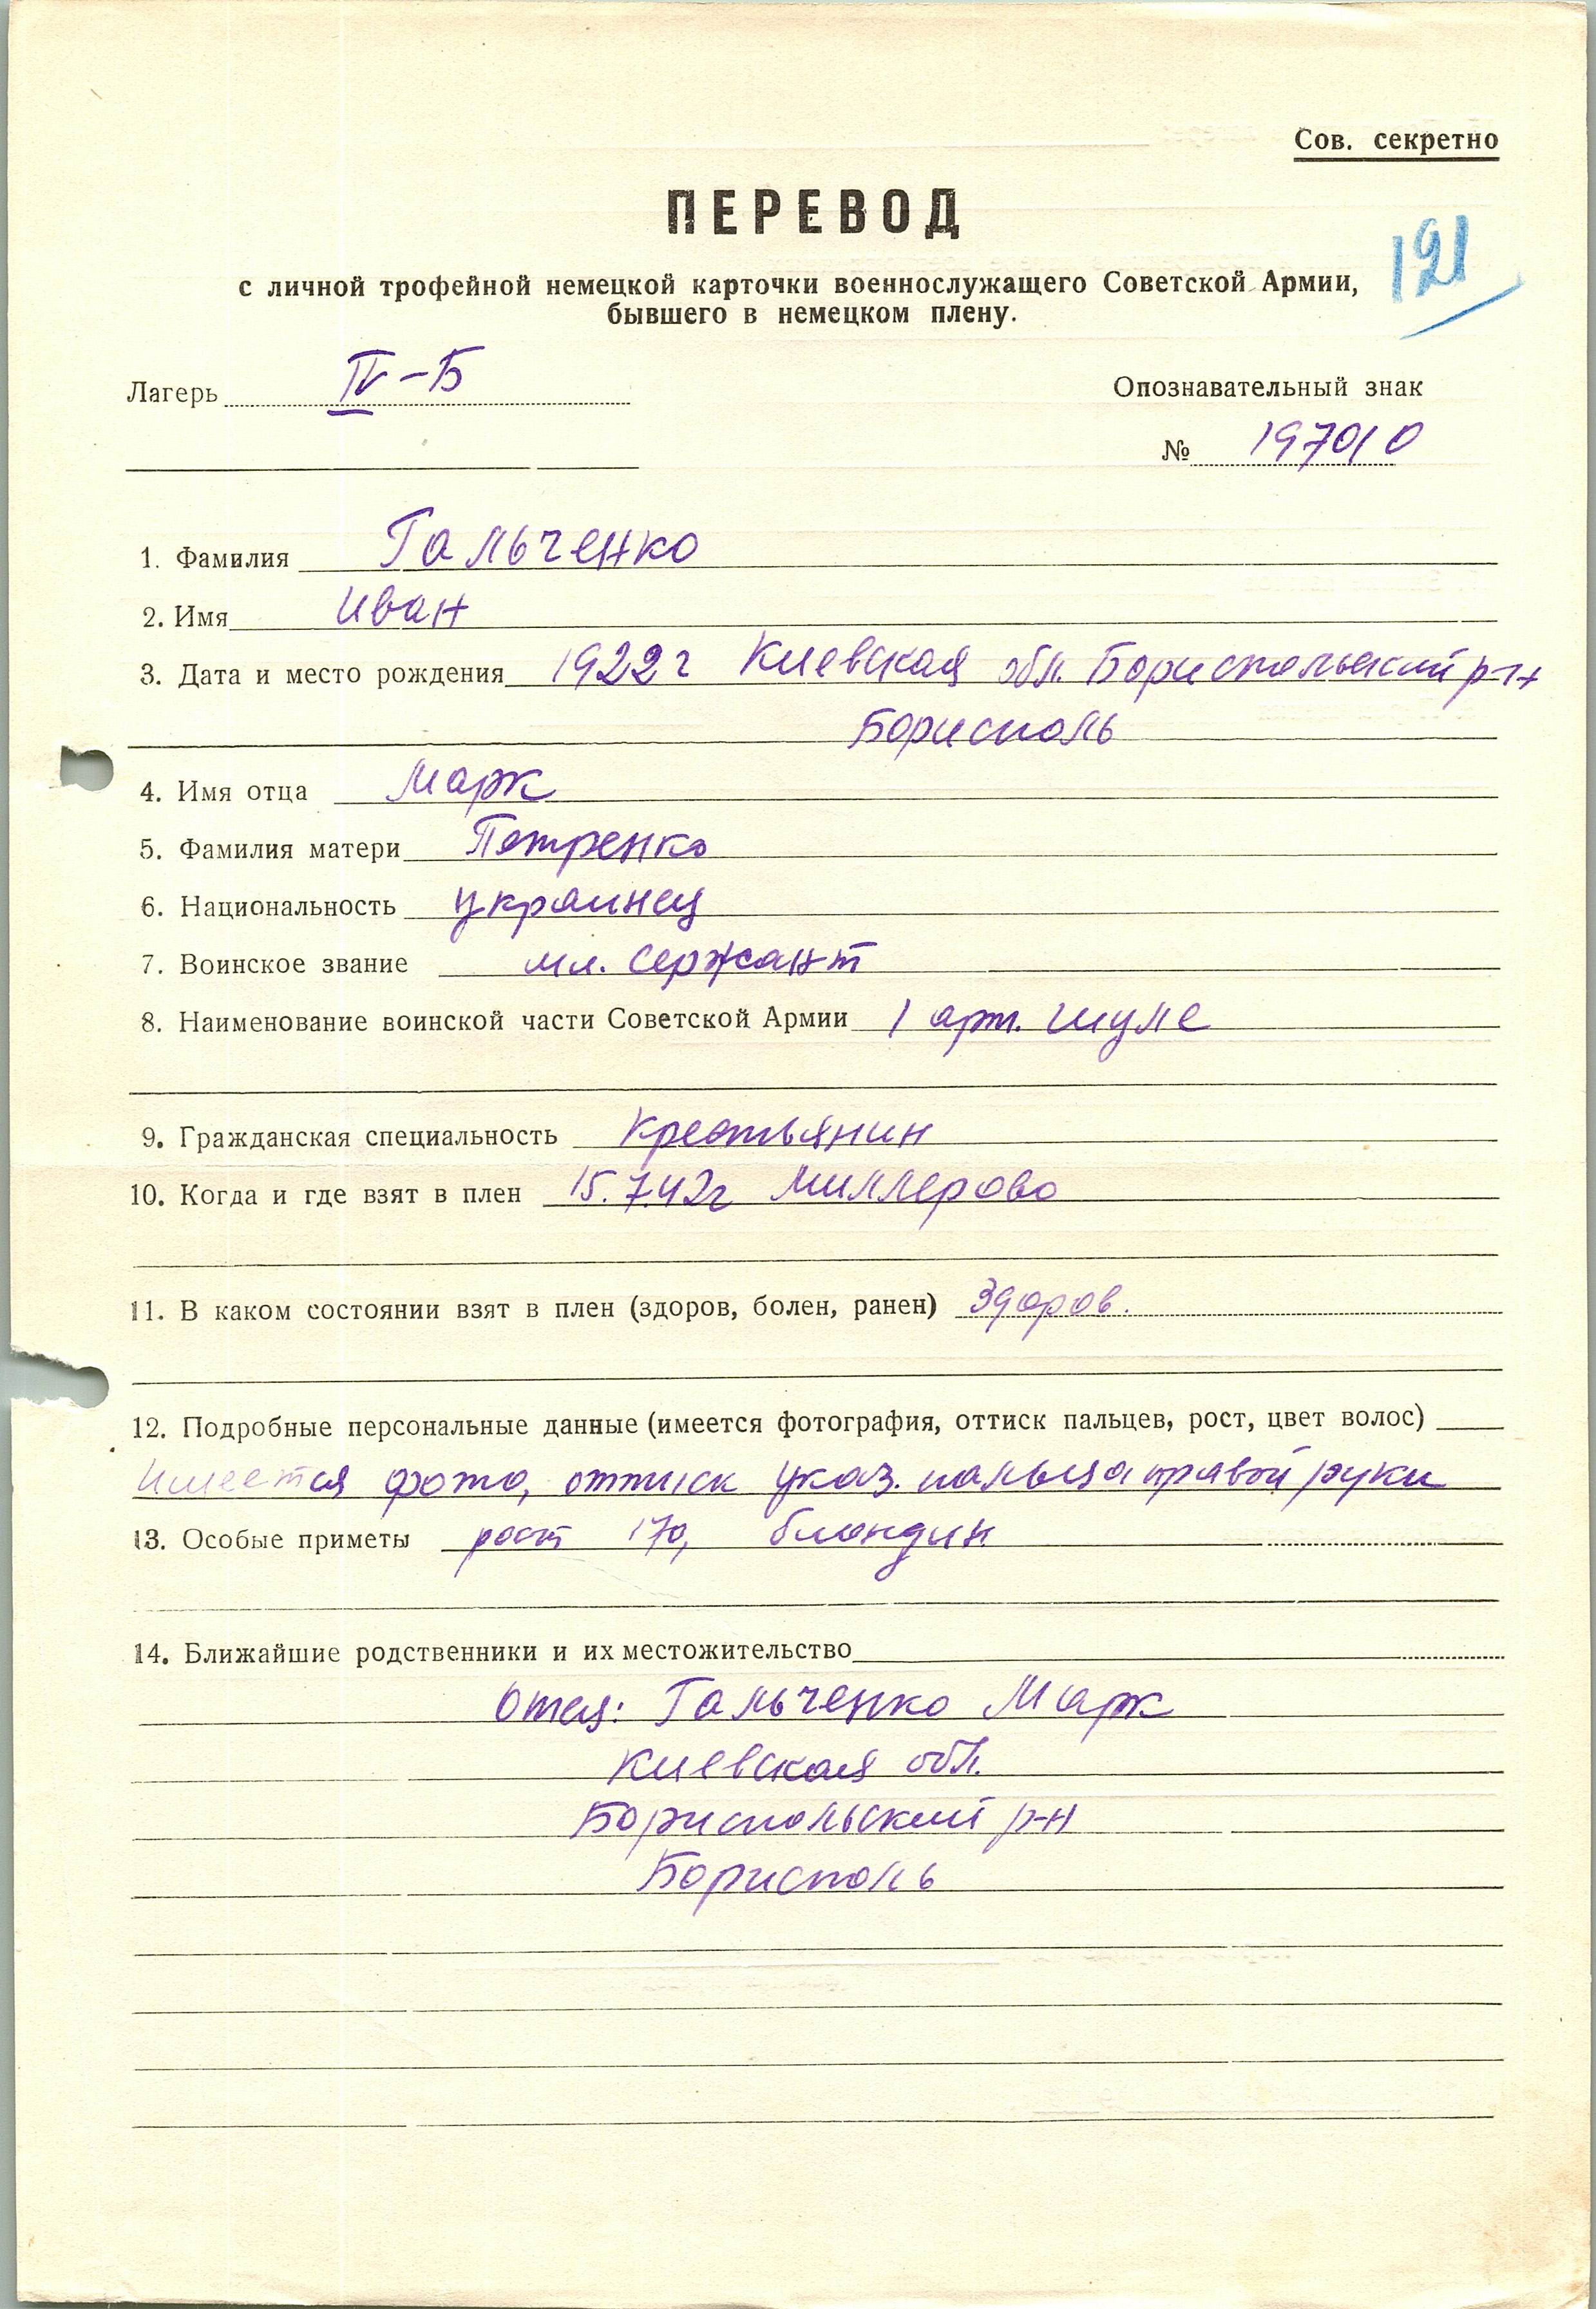 Сов. секретно
ПЕРЕВОД
121
с личной трофейной немецкой карточки военнослужащего Советской Армии,
бывшего в немецком плену.
Лагерь IV-Б
Опознавательный знак
№ 197010
1. Фамилия Гальченко
2. Имя Иван
3. Дата и место рождения 1922 г Киевская обл. Бориспольский р-н
Борисполь
4. Имя отца Марк
5. Фамилия матери Петренко
6. Национальность украинец
7. Воинское звание мл. сержант
8. Наименование воинской части Советской Армии 1 арт. шуле
9. Гражданская специальность Крестьянин
10. Когда и где взят в плен 15.7.42г Миллерово
11. В каком состоянии взят в плен (здоров, болен, ранен) Здоров.
12. Подробные персональные данные (имеется фотография, оттиск пальцев, рост, цвет волос)
Имеется фото, оттиск указ. пальца правой руки
13. Особые приметы рост 170, блондин
14. Ближайшие родственники и их местожительство
Отец: Гальченко Марк
Киевская обл.
Бориспольский р-н
Борисполь